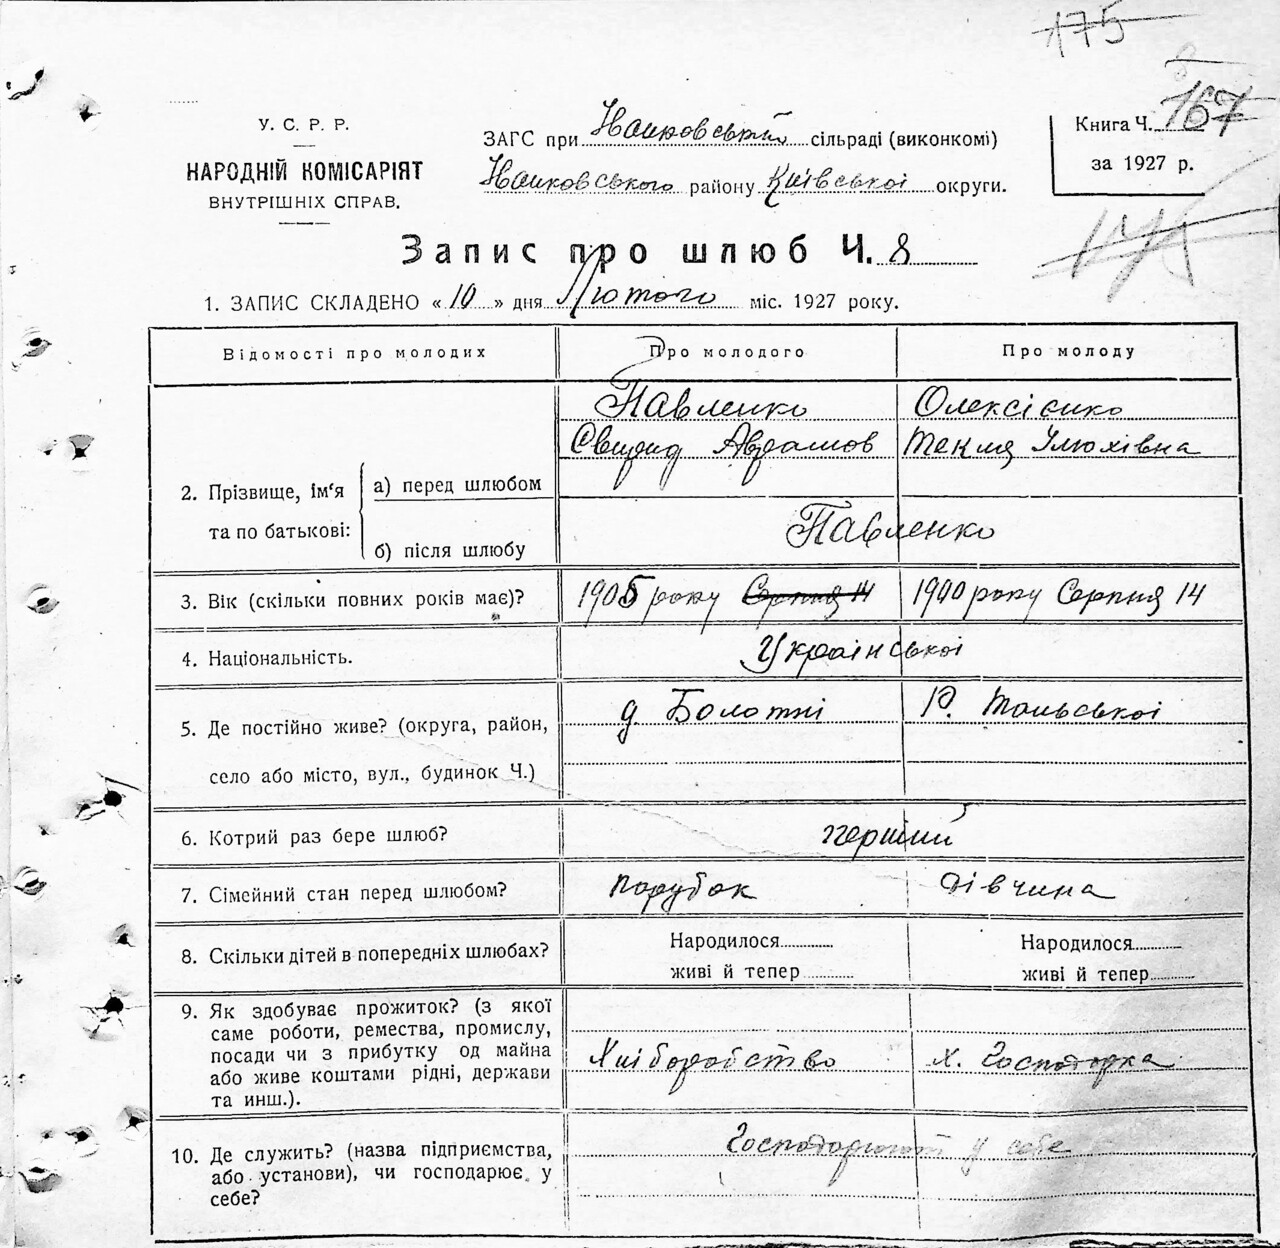 175
167
У. С. Р. Р.
НАРОДНІЙ КОМІСАРІЯТ
ВНУТРІШНІХ СПРАВ.
ЗАГС при сільраді (виконкомі)
району Київської округи.
Книга Ч.
за 1927 р.
175
Запис про шлюб Ч. 8
1. ЗАПИС СКЛАДЕНО «10» дня Лютого міс. 1927 року.
Відомості про молодих Про молодого Про молоду
Павленко Олексієнко
Свирид Аврамов Текля Ілюхівна
2. Прізвище, ім'я та по батькові:
а) перед шлюбом
б) після шлюбу
Павленко
3. Вік (скільки повних років має)? 1905 року Серпня 14 1900 року Серпня 14
4. Національність. Української
5. Де постійно живе? (округа, район, село або місто, вул., будинок Ч.)
д Болотні Р.
6. Котрий раз бере шлюб? перший
7. Сімейний стан перед шлюбом? парубок дівчина
8. Скільки дітей в попередніх шлюбах? Народилося Народилося
живі й тепер живі й тепер
9. Як здобуває прожиток? (з якої
саме роботи, ремества, промислу,
посади чи з прибутку од майна
або живе коштами рідні, держави
та инш.).
Хліборобство х. Господарка
10. Де служить? (назва підприємства,
або установи), чи господарює у
себе?
у себе